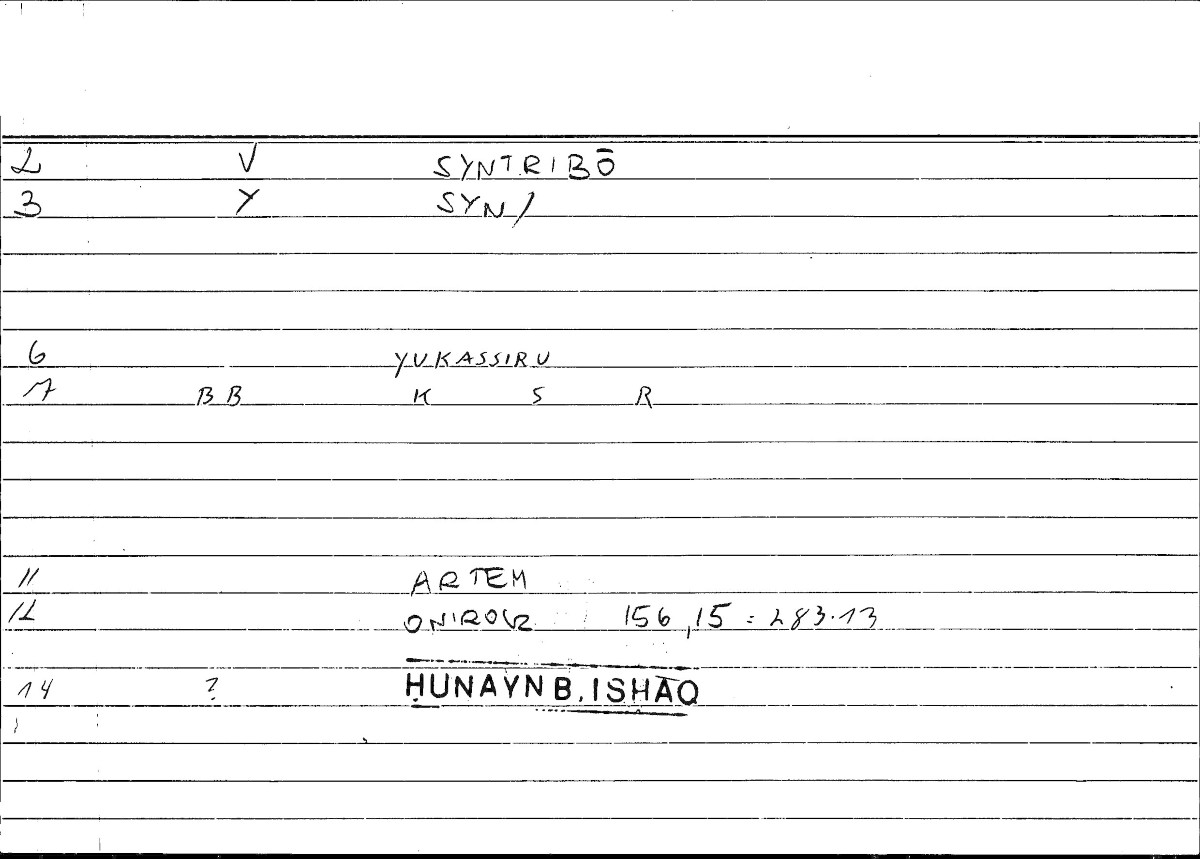 2 V SYNTRIBŌ
3 Y SYN/
6 YUKASSIRU
7 BB K S R
11 ARTEM
12 ONIROCR 156,15 = 283.13
14 ? ḤUNAYN B. ISḤĀQ